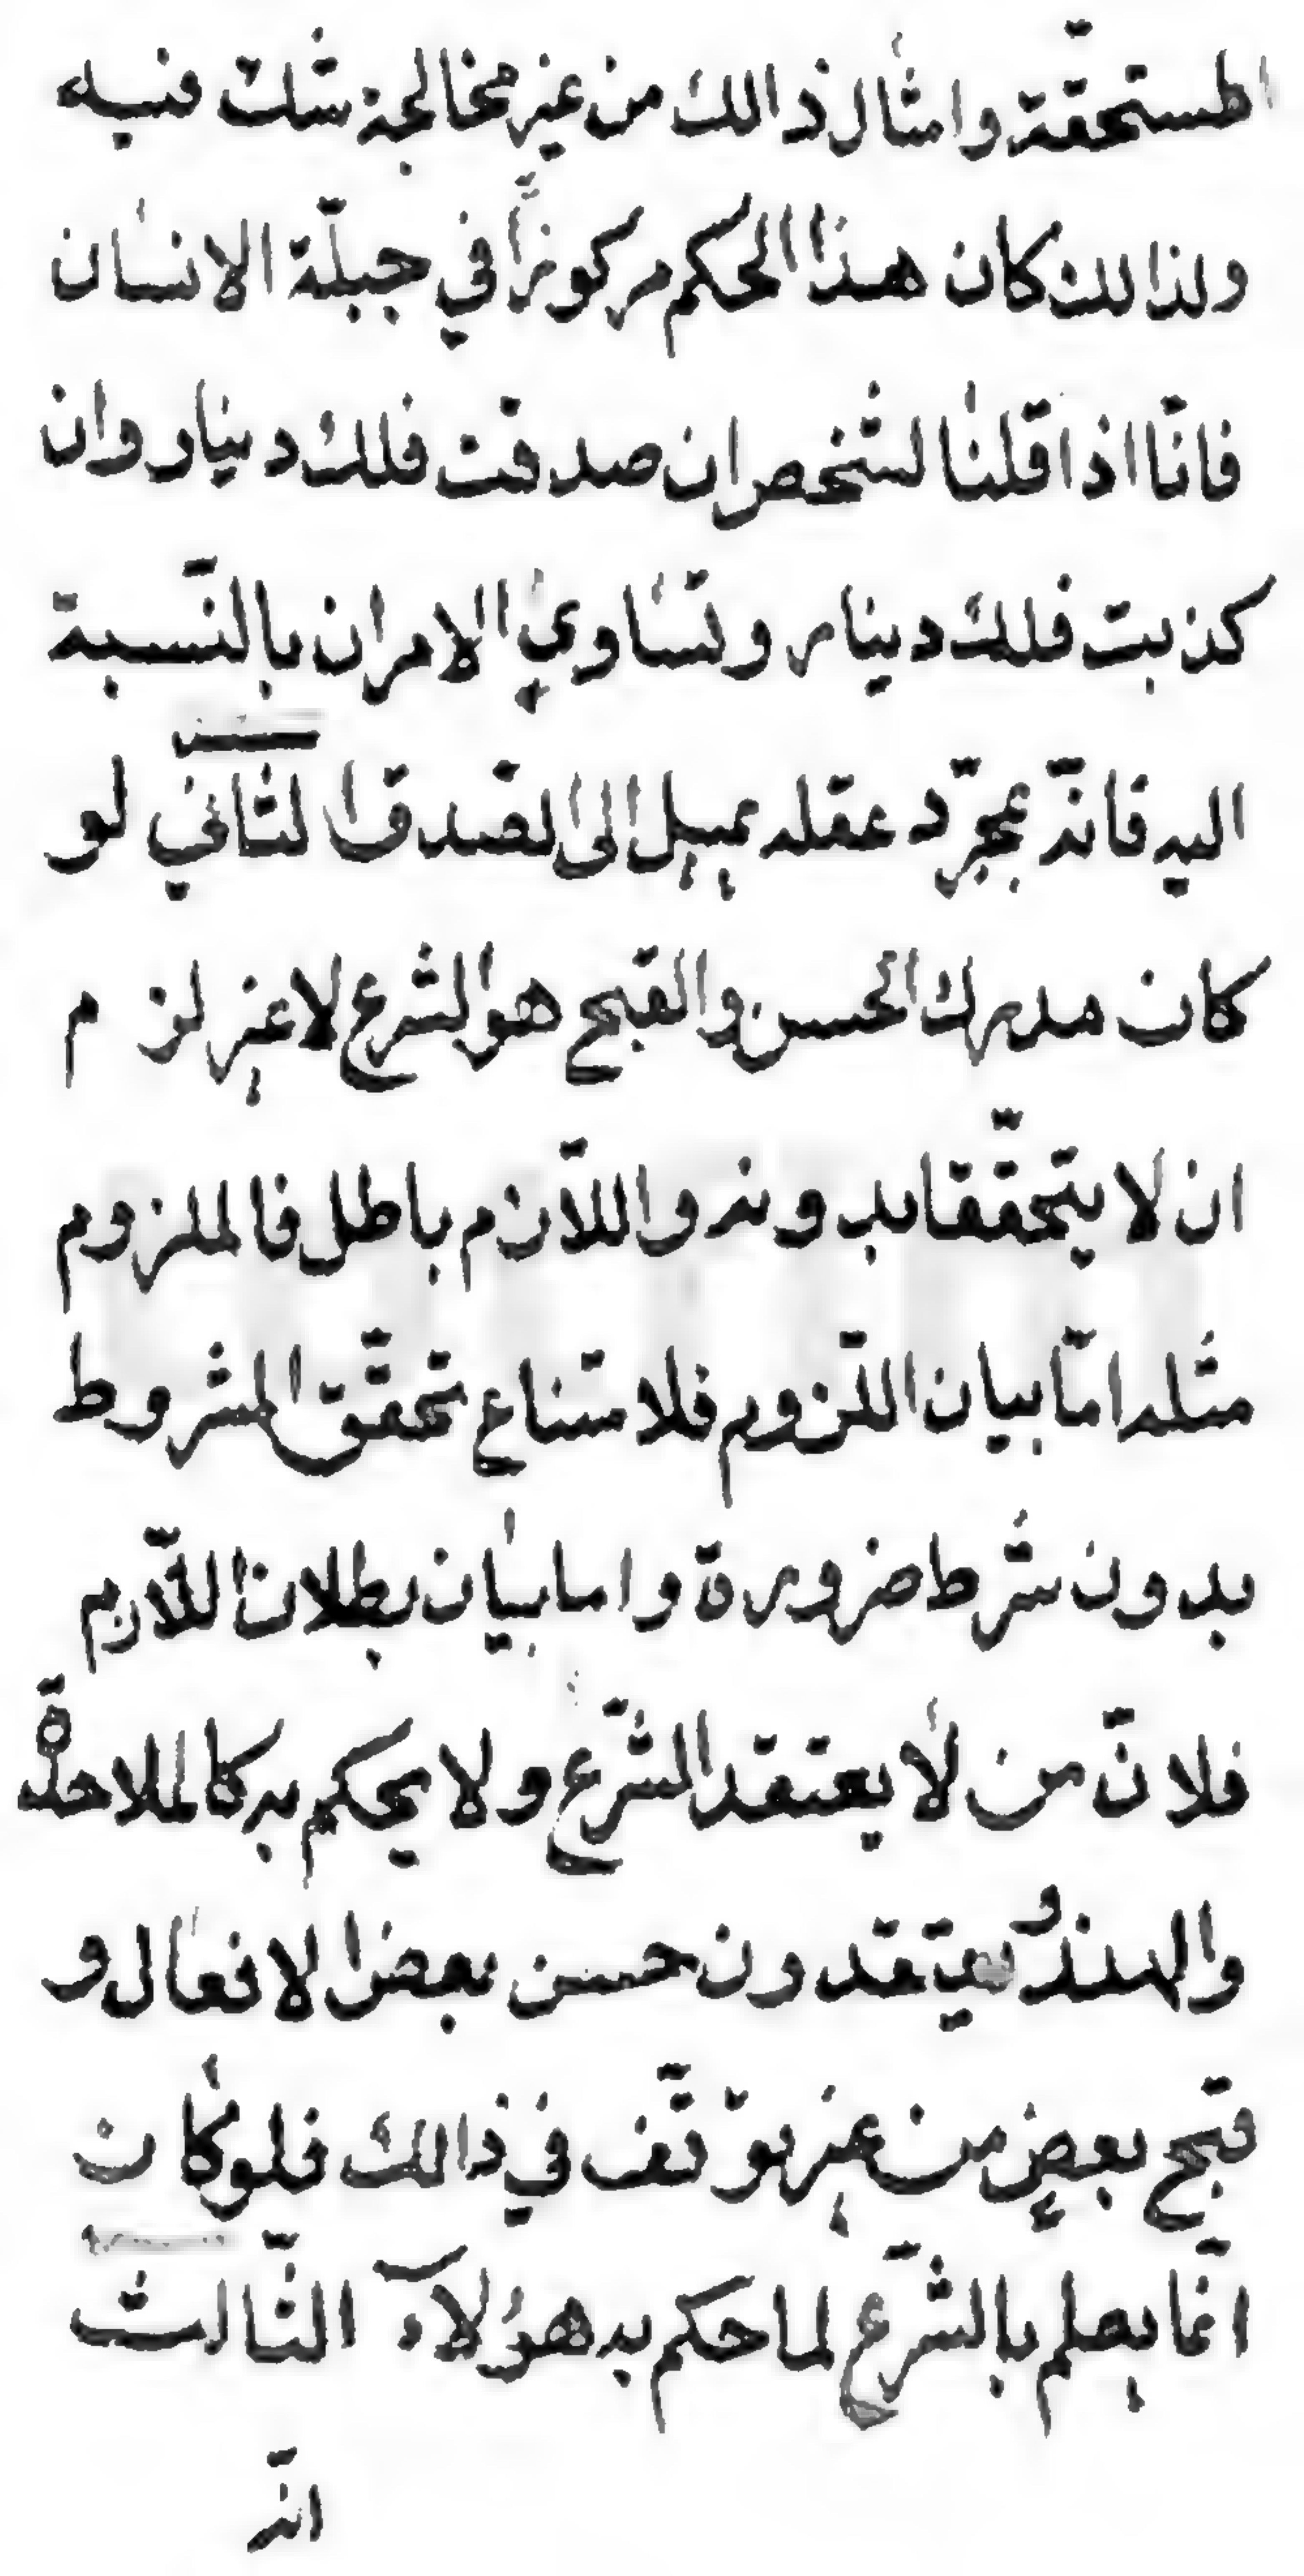 المستحقّة وامثال ذالك من غير مخالجة شك فيه
ولذالك كان هذا الحكم مركوزًا في جبلّة الانسان
فانّا اذا قلنا لشخص ان صدقت فلك دينار وان
كذبت فلك دينار وتساوي الامران بالنّسبة
اليه فانّه بمجرّد عقله يميل الى الصّدق الثاني لو
كان مدرك الحسن والقبح هو الشرع لا غير لزم
ان لا يتحقّقا بدونه واللّازم باطل فالملزوم
مثله امّا بيان اللّزوم فلامتناع تحقّق المشروط
بدون شرط ضرورة واما بيان بطلان اللّازم
فلانّ من لا يعتقد الشّرع ولا يحكم به كالملاحدة
والهندو يعتقدون حسن بعض الافعال و
قبح بعض من غير توقّف في ذالك فلو كان
انّما يعلم بالشّرع لما حكم به هؤلآء الثّالث
انّه